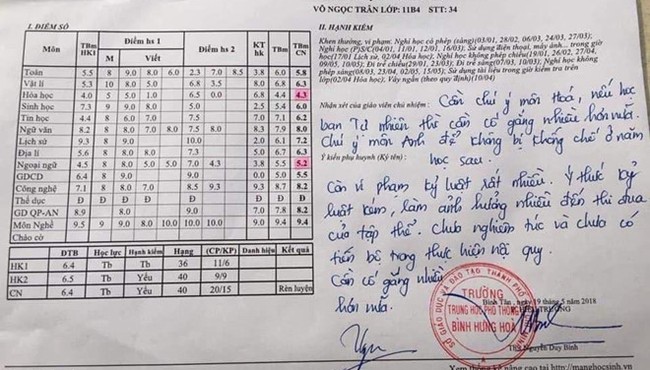 VÕ NGỌC TRÂN LỚP: 11B4 STT: 34
I. ĐIỂM SỐ
Môn TBm HK1 Điểm hs 1 Điểm hs 2 KT hk TBm HK2 TBm CN
M Viết
Toán 5.5 8 9.0 8.0 6.0 2.3 7.0 8.5 3.8 6.0 5.8
Vật lí 5.3 10 8.0 5.0 6.8 3.5 8.0 6.8 6.3
Hóa học 4.0 5 5.0 1.0 6.5 0.0 6.8 4.4 4.3
Sinh học 7.3 9 9.0 8.0 5.0 2.5 5.4 6.0
Tin học 4.4 8 6.0 7.0 7.5 7.0 7.1 6.2
Ngữ văn 8.2 8 8.0 7.0 8.0 7.5 8.0 8.3 7.9 8.0
Lịch sử 9.3 8 9.0 10.0 2.0 6.1 7.2
Địa lí 5.6 8 8.0 8.0 7.3 5.0 6.7 6.3
Ngoại ngữ 4.5 8 8.0 5.0 5.0 7.0 4.3 3.8 5.5 5.2
GDCD 6.4 8 9.0 9.0 0.0 5.0 5.5
Công nghệ 7.1 8 8.0 7.0 8.5 9.3 9.3 8.7 8.2
Thể dục Đ Đ Đ Đ Đ Đ
GD QP-AN 8.9 8.0 9.0 7.0 7.8 8.2
Môn Nghề 9.5 9 9.0 8.0 10.0 10.0 9.0 9.4 9.4
Chào cờ
ĐTB Học lực Hạnh kiểm Hạng (CP/KP) Danh hiệu Kết quả
HK1 6.4 Tb Tb 36 11/6
HK2 6.5 Tb Yếu 40 9/9
CN 6.4 Tb Yếu 40 20/15 Rèn luyện
II. HẠNH KIỂM
Khen thưởng, vi phạm: Nghỉ học có phép (sáng)(03/01, 28/02, 06/03, 24/03, 27/03);
Nghỉ học (P)S/C(04/01, 11/01, 12/01, 16/03); Sử dụng điện thoại, máy ảnh... trong giờ
học(17/01 Lịch sử, 02/04 Hóa học); Nghỉ học không phép chiều(19/01, 26/02, 27/04,
09/05, 10/05); Đi trễ chiều(29/01, 23/03); Đi trễ sáng(07/03, 10/03); Nghỉ học không
phép sáng(08/03, 23/04, 02/05, 15/05); Sử dụng tài liệu trong giờ kiểm tra trên
lớp(02/04 Hóa học), Váy ngắn (10/04)
Nhận xét của giáo viên chủ nhiệm: Cần chú ý môn Hoá, nếu học
ban Tự nhiên thì cần cố gắng nhiều hơn nữa.
Chú ý môn Anh để không bị khống chế ở năm
học sau.
Ý kiến phụ huynh (Ký tên):
Còn vi phạm kỷ luật rất nhiều. Ý thức kỷ
luật kém, làm ảnh hưởng nhiều đến thi đua
của tập thể. Chưa nghiêm túc và chưa có
tiến bộ trong thực hiện nội quy.
Cần cố gắng nhiều
hơn nữa.
Bình Tân, ngày 19 tháng 5 năm 2018
SỞ GIÁO DỤC VÀ ĐÀO TẠO THÀNH PHỐ
TRƯỜNG
TRUNG HỌC PHỔ THÔNG
BÌNH HƯNG HOÀ
Nguyễn Duy Bình
http://manghocsinh.vn/